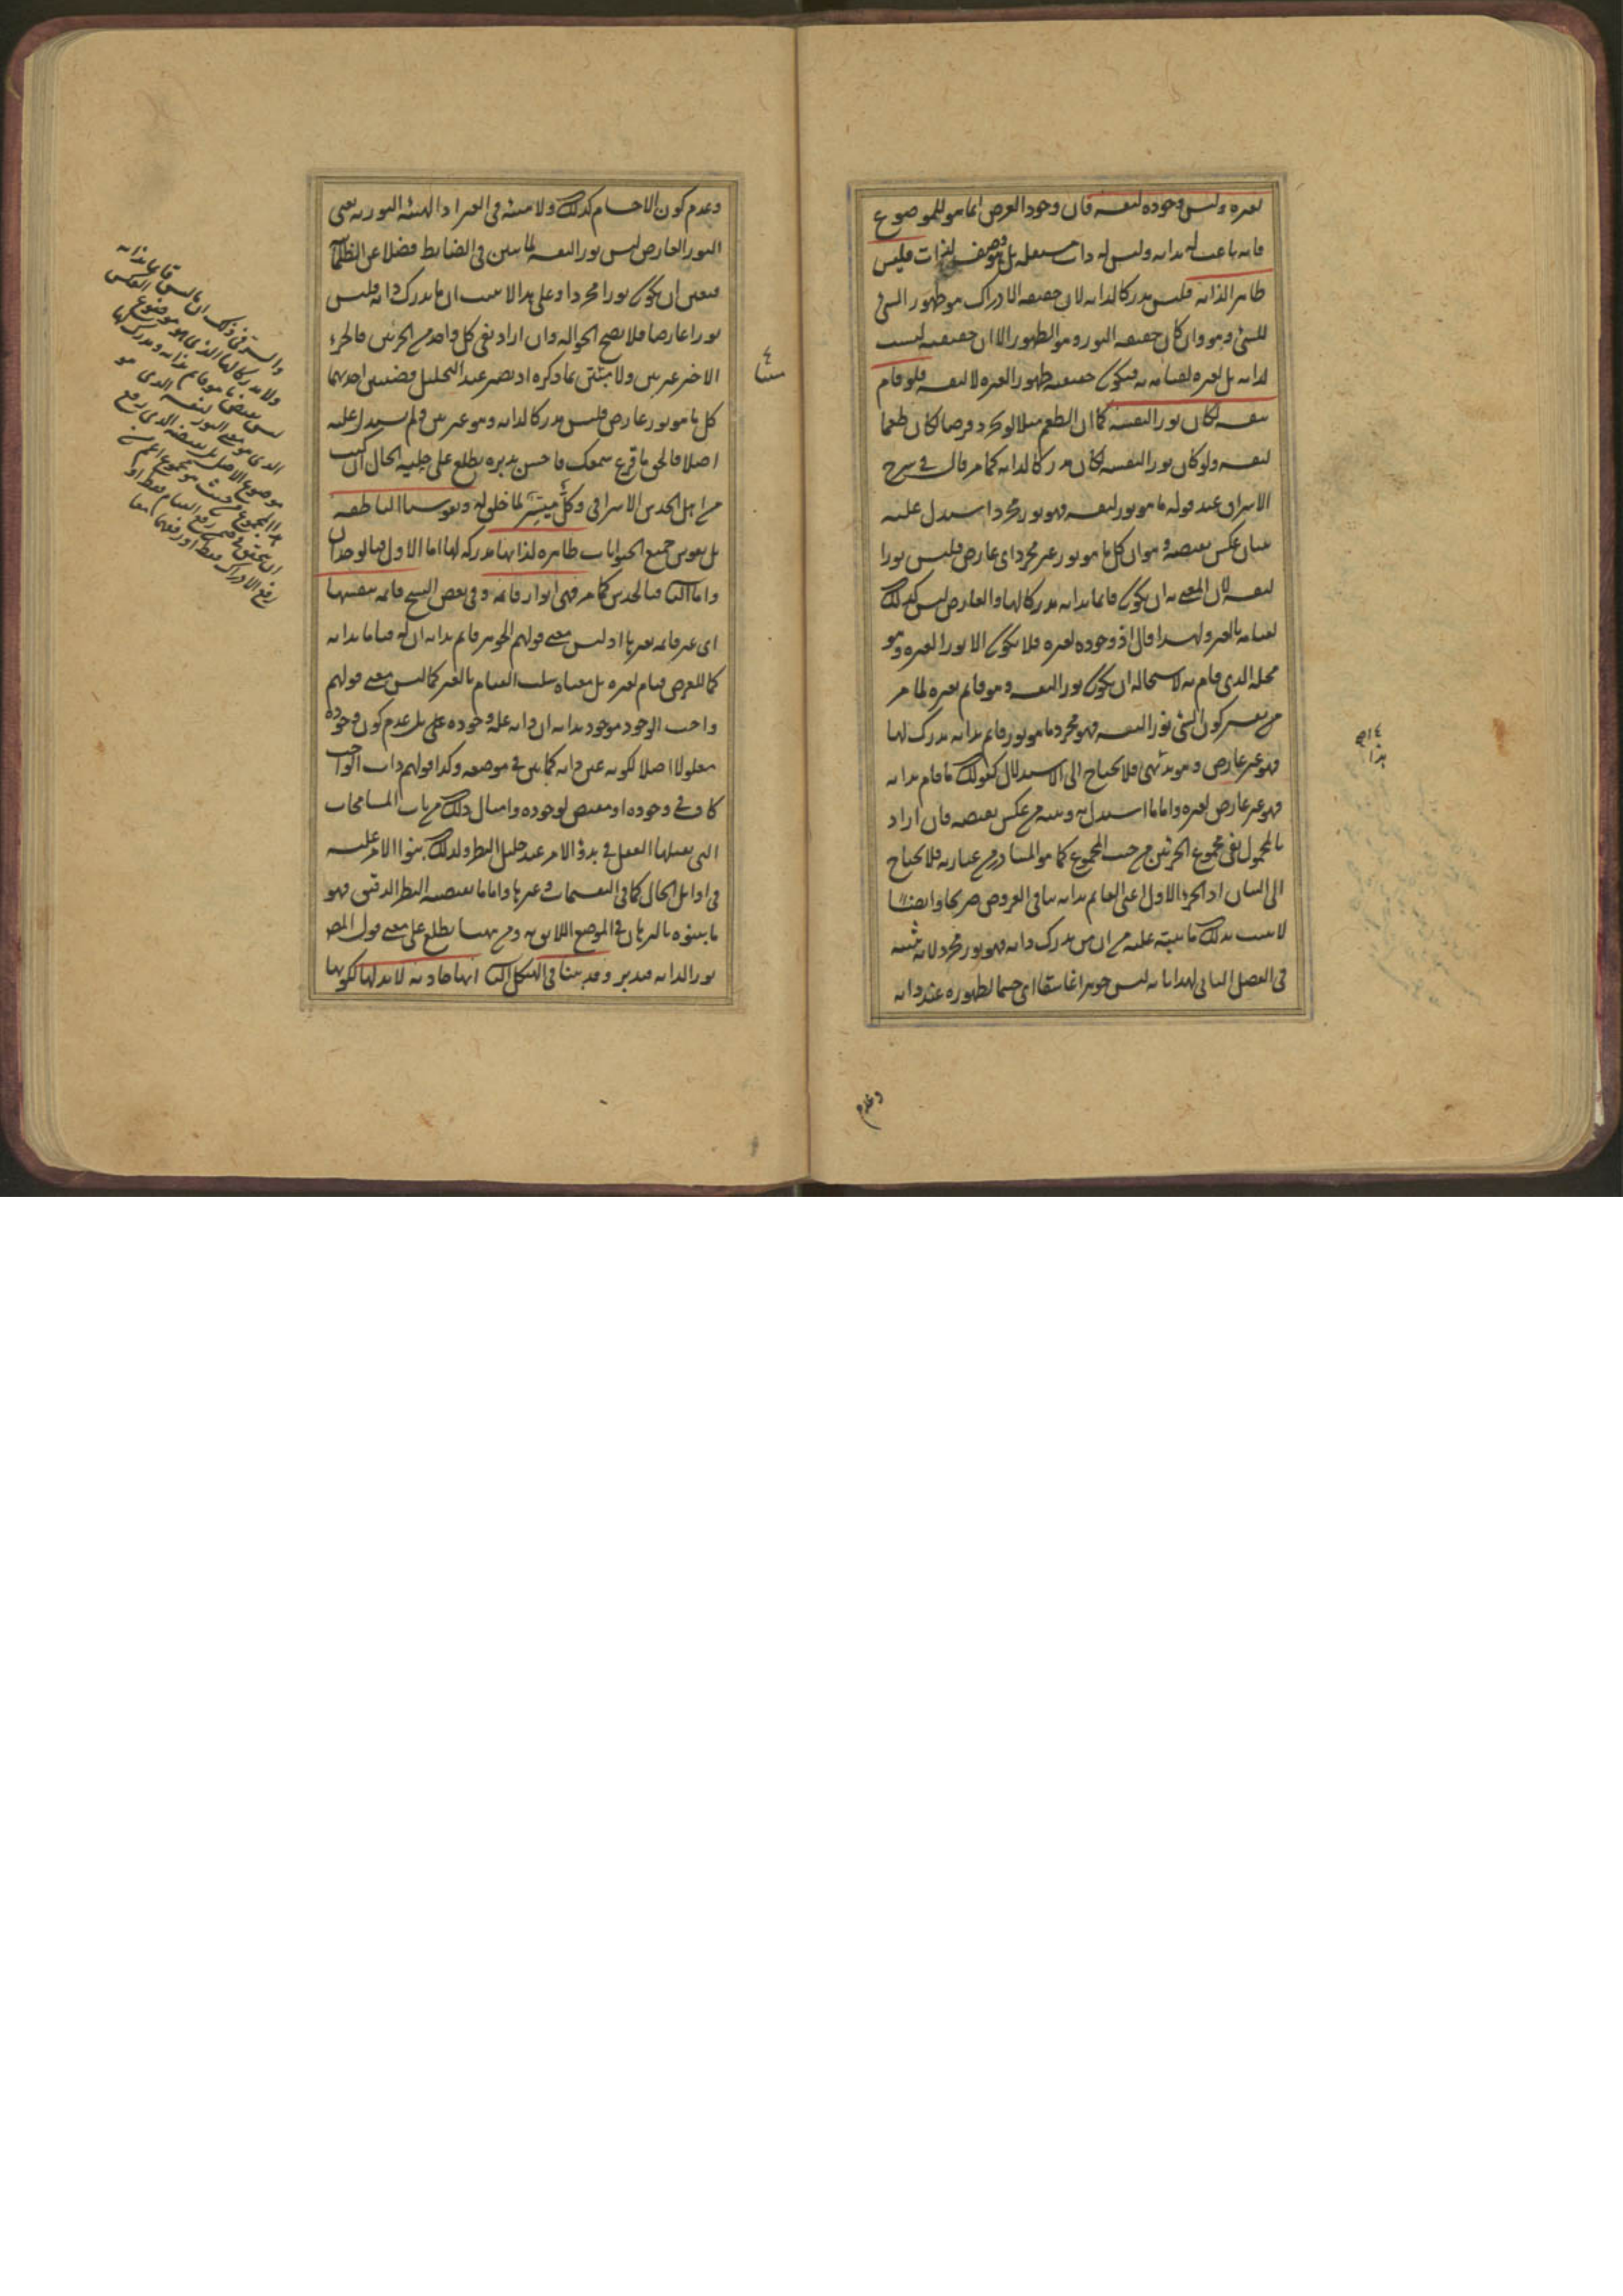 لغيره وليس وجوده لنفسه فان وجود العرض انما هو للموضوع
فانه باعتبار ذاته وليس له ذات مستقلة بل هو وصف لذات فليس
ظاهر الذاته فليس مدركا لذاته لان حقيقة الادراك هو ظهور الشئ
للشئ وهو وان كان حقيقة النور وهو الظهور الا ان حقيقته ليست
لذاته بل لغيره لقيامه به فيكون حقيقته ظهورا لغيره لا لنفسه فلو قام
بنفسه لكان نورا لنفسه كما ان الطعم مثلا لو تجرد فرضا لكان طعما
لنفسه ولو كان نورا لنفسه لكان مدركا لذاته كما مر قال في شرح
الاشراق عند قوله ما هو نور لنفسه فهو نور مجرد استدل عليه
ببيان عكس نقيضه وهو ان كل ما هو نور غير مجرد اى عارض فليس نورا
لنفسه لان المعنى به ان يكون قائما بذاته مدركا لها والعارض ليس كذلك
لقيامه بالغير ولهذا قال اذ وجوده لغيره فلا يكون الا نورا لغيره وهو
محله الذى قام به لاستحالة ان يكون نورا لنفسه وهو قائم بغيره ظاهر
من تفسير كون الشئ نورا لنفسه فهو مجرد ما هو نور قائم بذاته مدرك لها
فهو غير عارض وهو بديهى فلا يحتاج الى الاستدلال كقولك ما قام بذاته
فهو غير عارض لغيره واما ما استدل به وبينه من عكس نقيضه فان اراد
بالمحمول نفى مجموع الجزئين من حيث المجموع كما هو المتبادر من عبارته فلا يحتاج
الى البيان اذ الجزء الاول اعنى القائم بذاته ينافى العروض صريحا وايضا
لا يثبت بذلك ما يبتنى عليه من ان من يدرك ذاته فهو نور مجرد لانه بينه
فى الفصل التالى لهذا بانه ليس جوهرا غاسقا اى جسما لظهوره عند ذاته
وعدم
وعدم كون الاجسام كذلك ولا هيئة فى الغير اذ الهيئة النورية يعنى
النور العارض ليس نورا لنفسه لما بين فى الضابط فضلا عن الظلمانية
فتعين ان يكون نورا مجردا وعلى هذا لا يثبت ان ما يدرك ذاته فليس
نورا عارضا فلا يصح الحوالة وان اراد نفى كل واحد من الجزئين فالجزء
الاخير غير بين ولا مبتنى عما ذكره اذ يصير عند التحليل قضيتين احديهما
كل ما هو نور عارض فليس مدركا لذاته وهو غير بين فلم يستدل عليه
اصلا فالحق ما قرع سمعك فاحسن تدبره يطلع على جلية الحال ان كنت
من اهل الحدس الاشراقى وكل ميسر لما خلق له ونفوسنا الناطقة
بل نفوس جميع الحيوانات ظاهرة لذاتها مدركة لها اما الاول فبالوجدان
واما الثانى فبالحدس كما مر فهى انوار قائمة وفى بعض النسخ قائمة بنفسها
اى غير قائمة بغيرها اذ ليس معنى قولهم الجوهر قائم بذاته ان له قياما بذاته
كما للعرض قيام لغيره بل معناه سلب القيام بالغير كما ليس معنى قولهم
واجب الوجود موجود بذاته ان ذاته علة وجوده على بل عدم كون وجوده
معلولا اصلا لكونه عين ذاته كما بين فى موضعه وكذا قولهم ذات الواجب
كاف فى وجوده او مقتض لوجوده وامثال ذلك من باب المسامحات
التى يقبلها العقل فى بدؤ الامر عند جليل النظر ولذلك بنوا الامر عليه
فى اوايل الحال كما فى التقسيمات وغيرها واما ما يقتضيه النظر الدقيق فهو
ما بينوه بالبرهان فى الموضع اللايق به ومن ههنا يطلع على معنى قول المص
نور الذاته فتدبر وقد بينا فى الهيكل الثانى انها حادثة لا بد لها لكونها
والسر فى ذلك ان ما ليس قائما بذاته
ولا مدركا لها الذى هو موضوع العكس
ليس نقيض ما هو قائم بذاته ومدرك لها
الذى هو معنى النور لنفسه الذى هو
موضوع الاصل بل نقيضه الذى رفع
هذا المجموع من حيث هو مجموع اعم من
ان يتحقق فى ضمن رفع القيام فقط او
رفع الادراك فقط او رفعهما معا